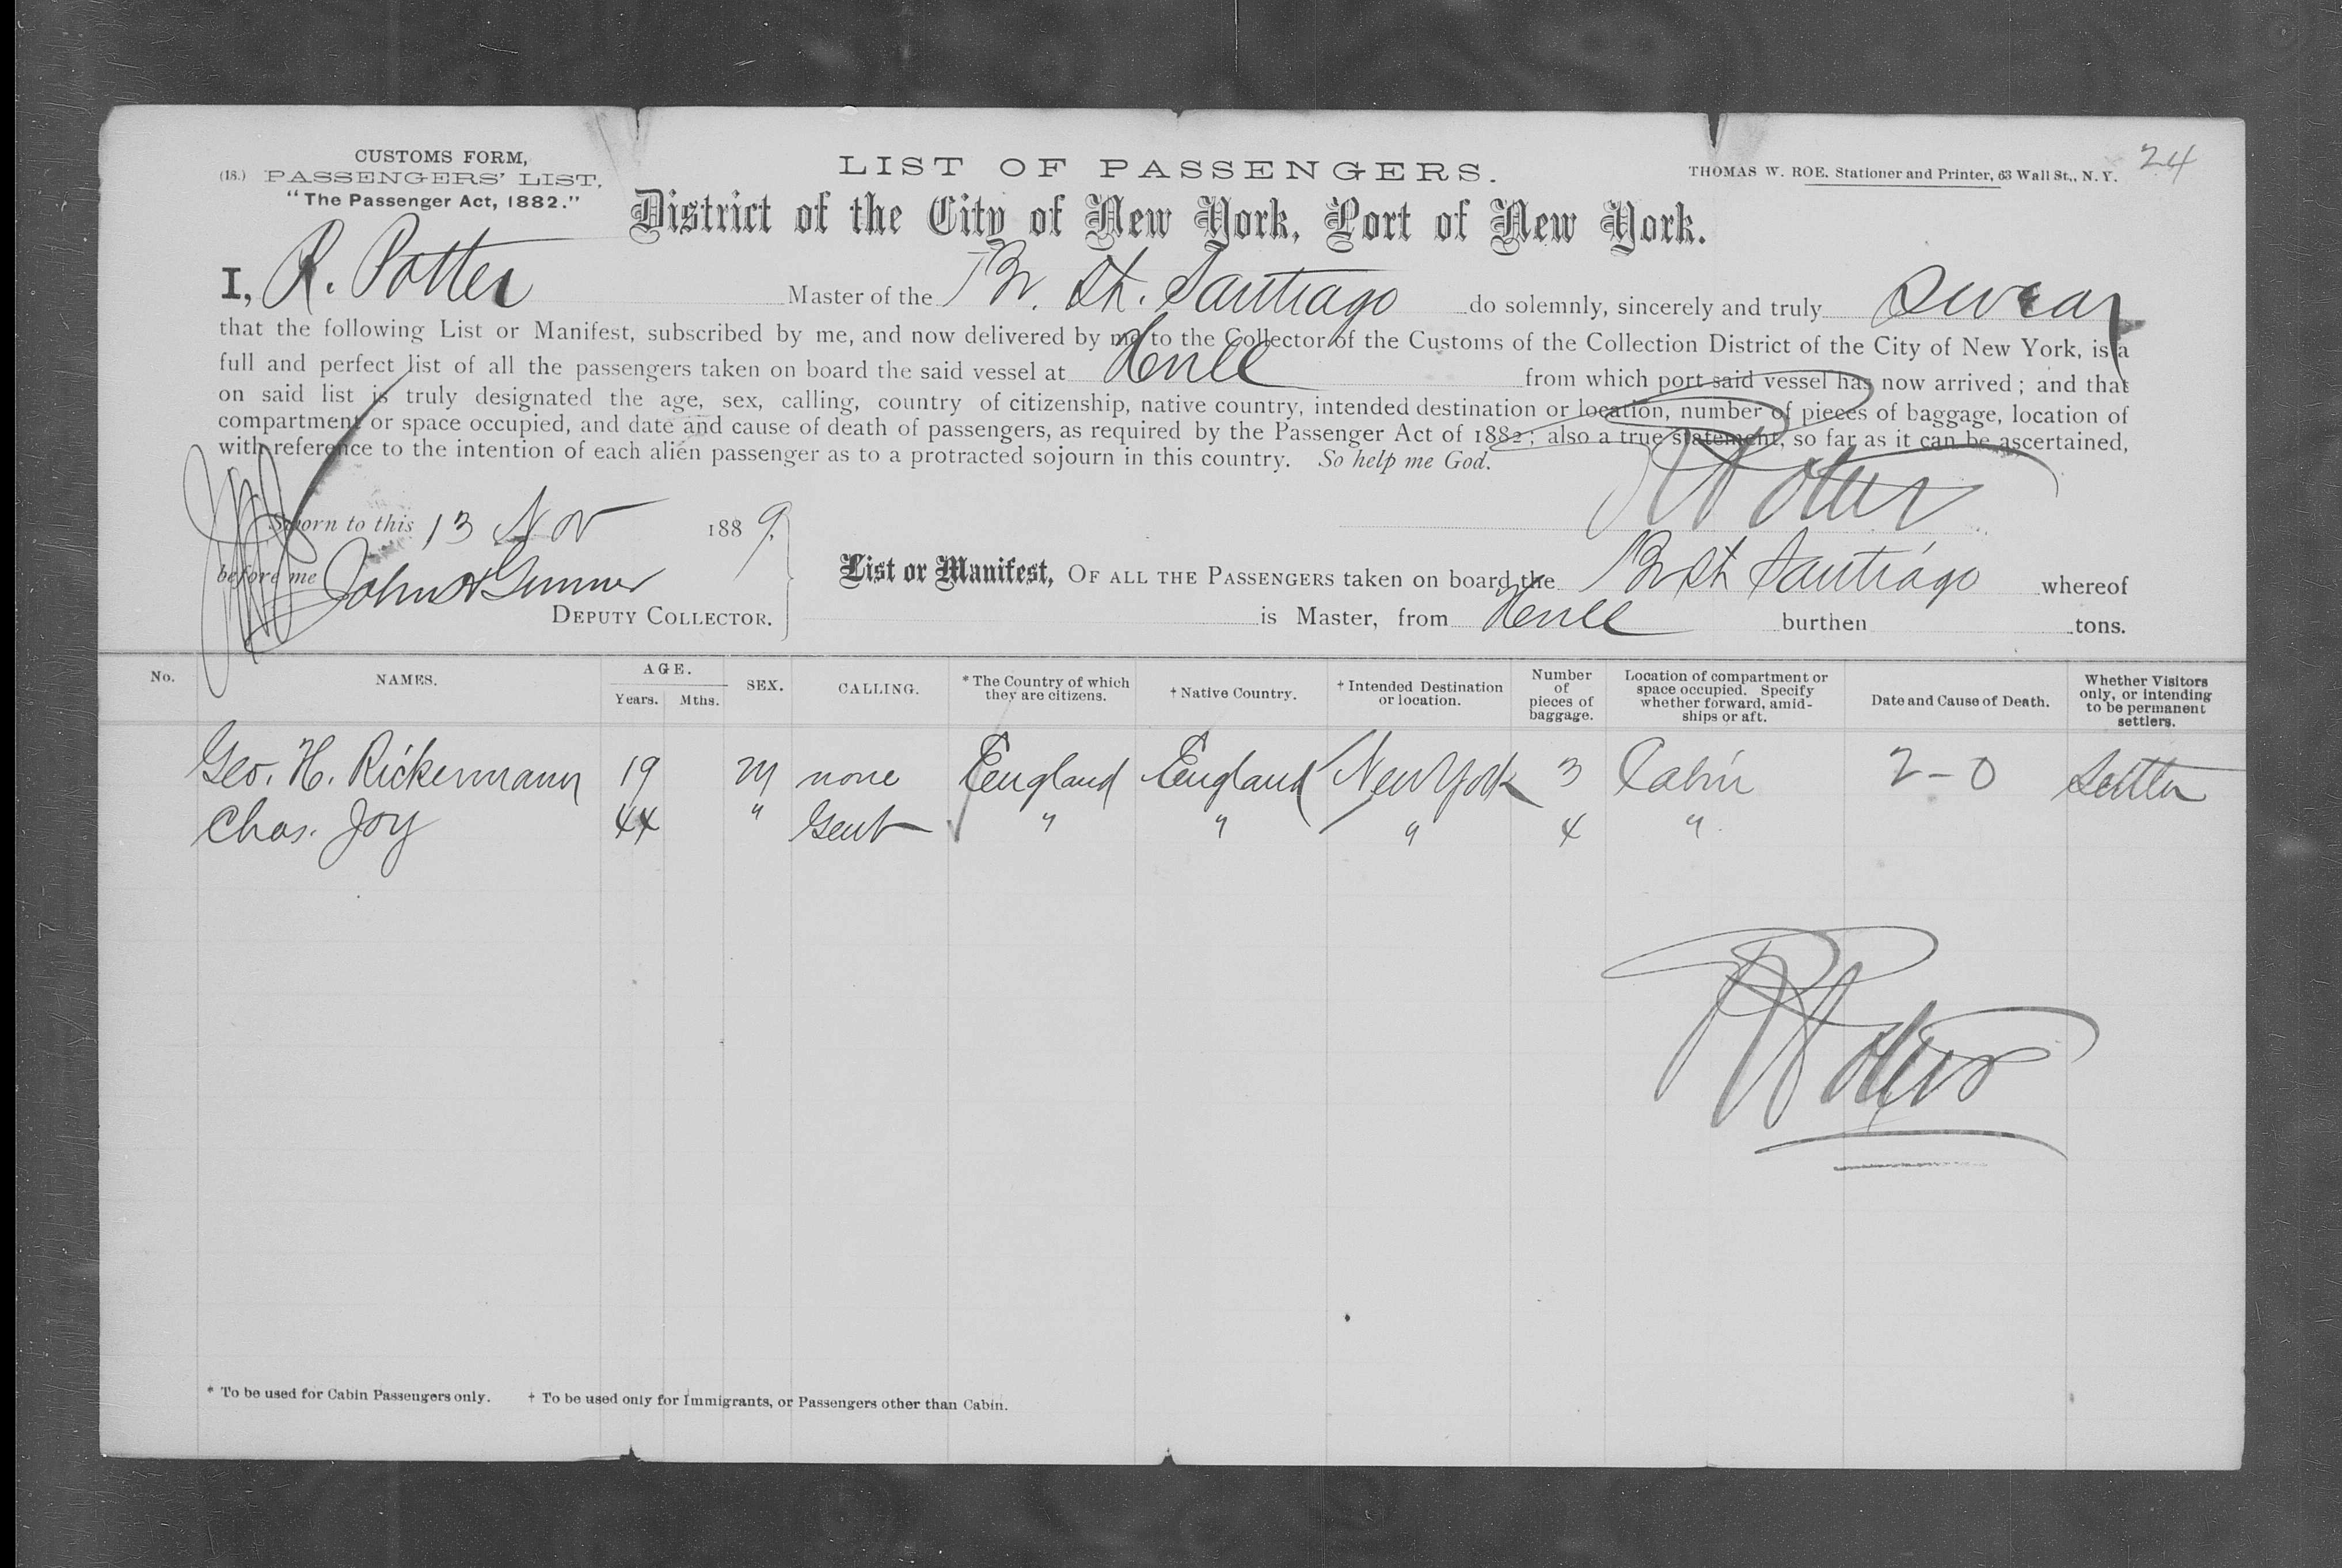 24
CUSTOMS FORM,
(18.) PASSENGERS' LIST,
"The Passenger Act, 1882."
LIST OF PASSENGERS.
THOMAS W. ROE. Stationer and Printer, 63 Wall St., N. Y.
District of the City of New York, Port of New York.
I, R. Potter Master of the Br. St. Santiago do solemnly, sincerely and truly Swear
that the following List or Manifest, subscribed by me, and now delivered by me to the Collector of the Customs of the Collection District of the City of New York, is a
full and perfect list of all the passengers taken on board the said vessel at Hull from which port said vessel has now arrived; and that
on said list is truly designated the age, sex, calling, country of citizenship, native country, intended destination or location, number of pieces of baggage, location of
compartment or space occupied, and date and cause of death of passengers, as required by the Passenger Act of 1882; also a true statement, so far as it can be ascertained,
with reference to the intention of each alien passenger as to a protracted sojourn in this country. So help me God.
R Potter
Sworn to this 13 Nov 1889.
before me John
DEPUTY COLLECTOR.
List or Manifest, OF ALL THE PASSENGERS taken on board the Br St Santiago whereof
is Master, from Hull burthen tons.
No. NAMES. AGE. Years. Mths. SEX. CALLING. * The Country of which they are citizens. † Native Country. † Intended Destination or location. Number of pieces of baggage. Location of compartment or space occupied. Specify whether forward, amidships or aft. Date and Cause of Death. Whether Visitors only, or intending to be permanent settlers.
Geo. H. Rickermann 19 M none England England New York 3 Cabin 2-0 Settler
Chas. Joy 44 " Gent " " " 4 "
R Potter
* To be used for Cabin Passengers only. † To be used only for Immigrants, or Passengers other than Cabin.